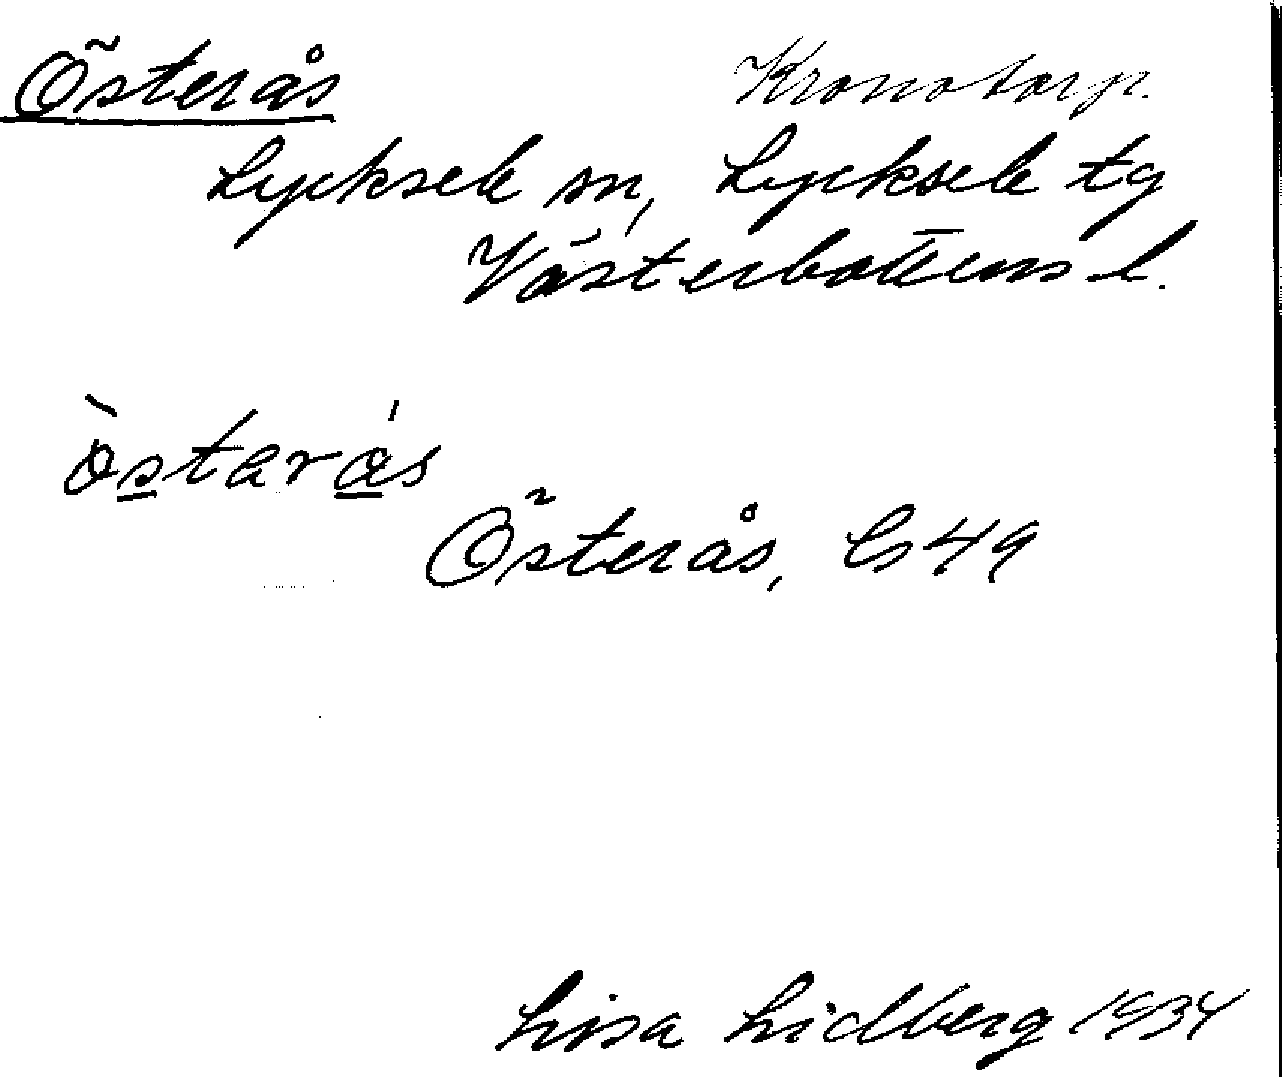 Österås Kronotorp.
Lycksele sn, Lycksele tg
Västerbottens l.
östarás
Österås,
Lisa Lidberg 1934